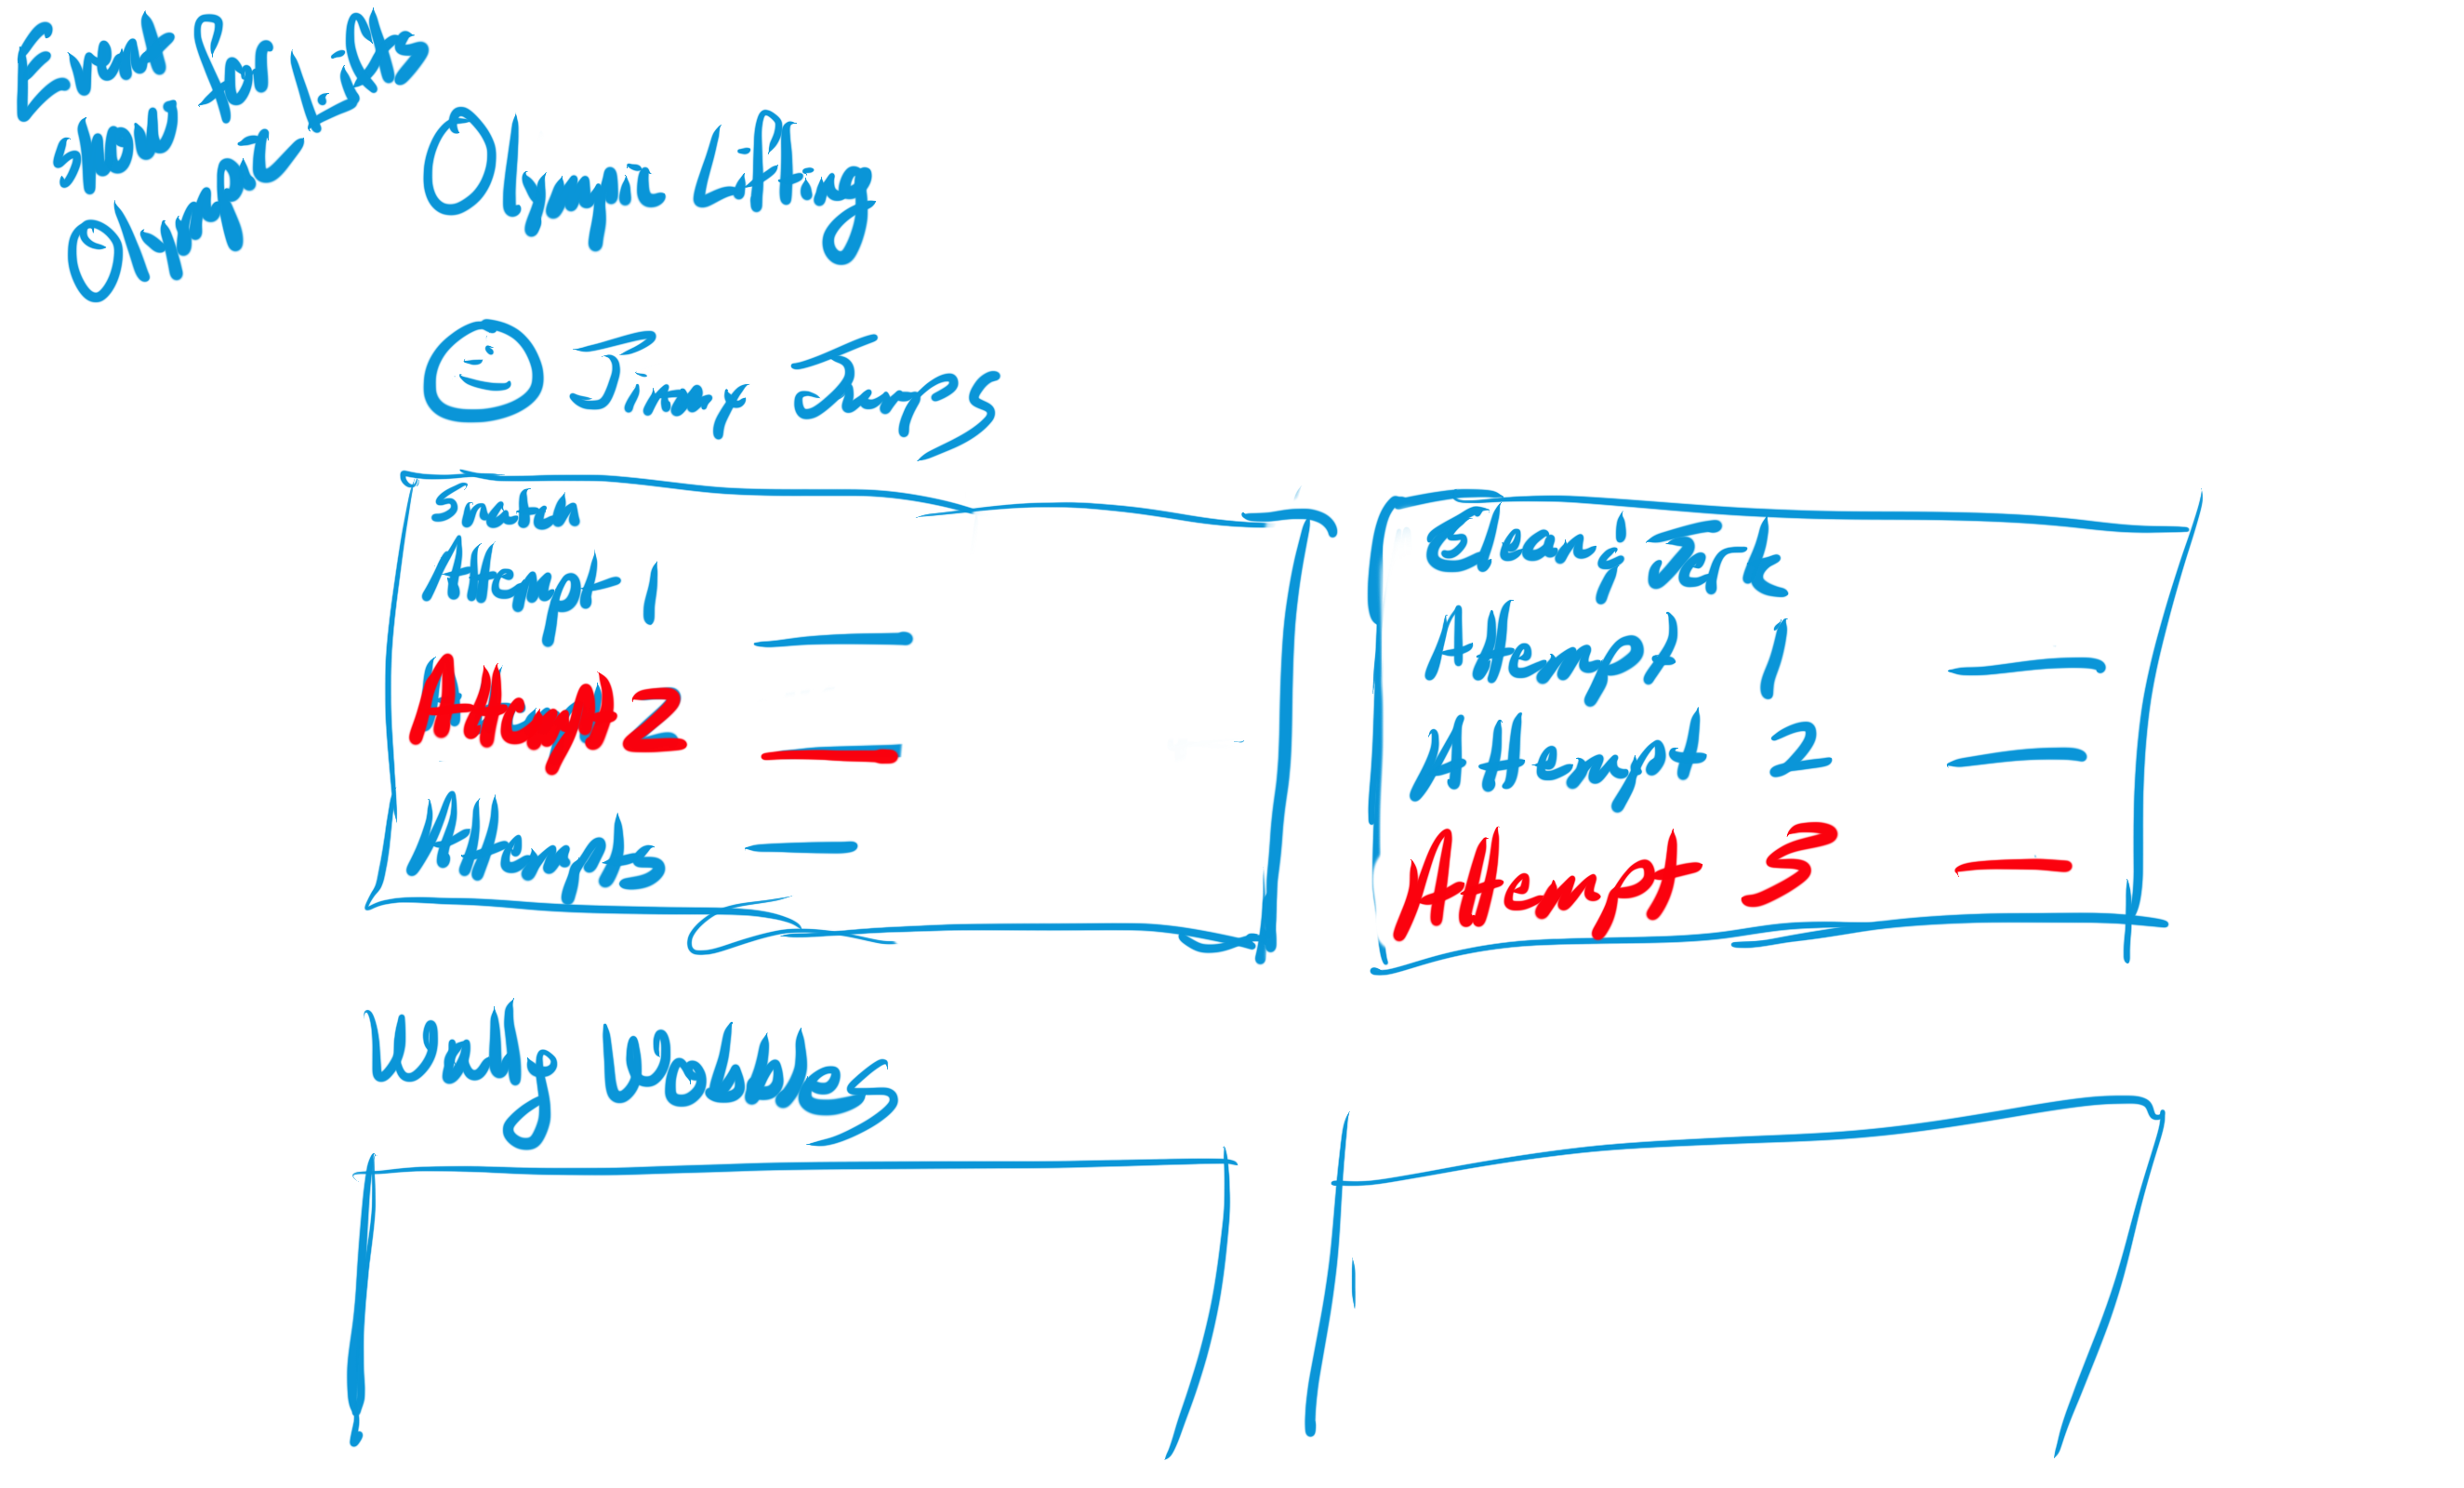 Event
Show for
Olympic Lifts
Olympic Lifting
Jimmy Jumps
Snatch
Attempt 1
Attempt 2
Attempt 3
Clean & Jerk
Attempt 1
Attempt 2
Attempt 3
Wendy Wobbles